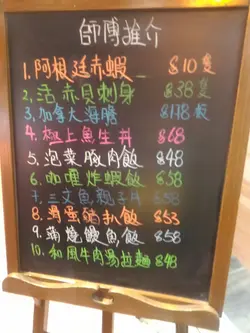 師傅推介
1. 阿根廷赤蝦 $10隻
2. 活赤貝刺身 $38隻
3. 加拿大海膽 $118板
4. 極上魚生丼 $68
5. 泡菜豚肉飯 $48
6. 咖喱炸蝦飯 $58
7. 三文魚親子丼 $58
8. 滑蛋豬扒飯 $53
9. 蒲燒鰻魚飯 $58
10. 和風牛肉湯拉麵 $48